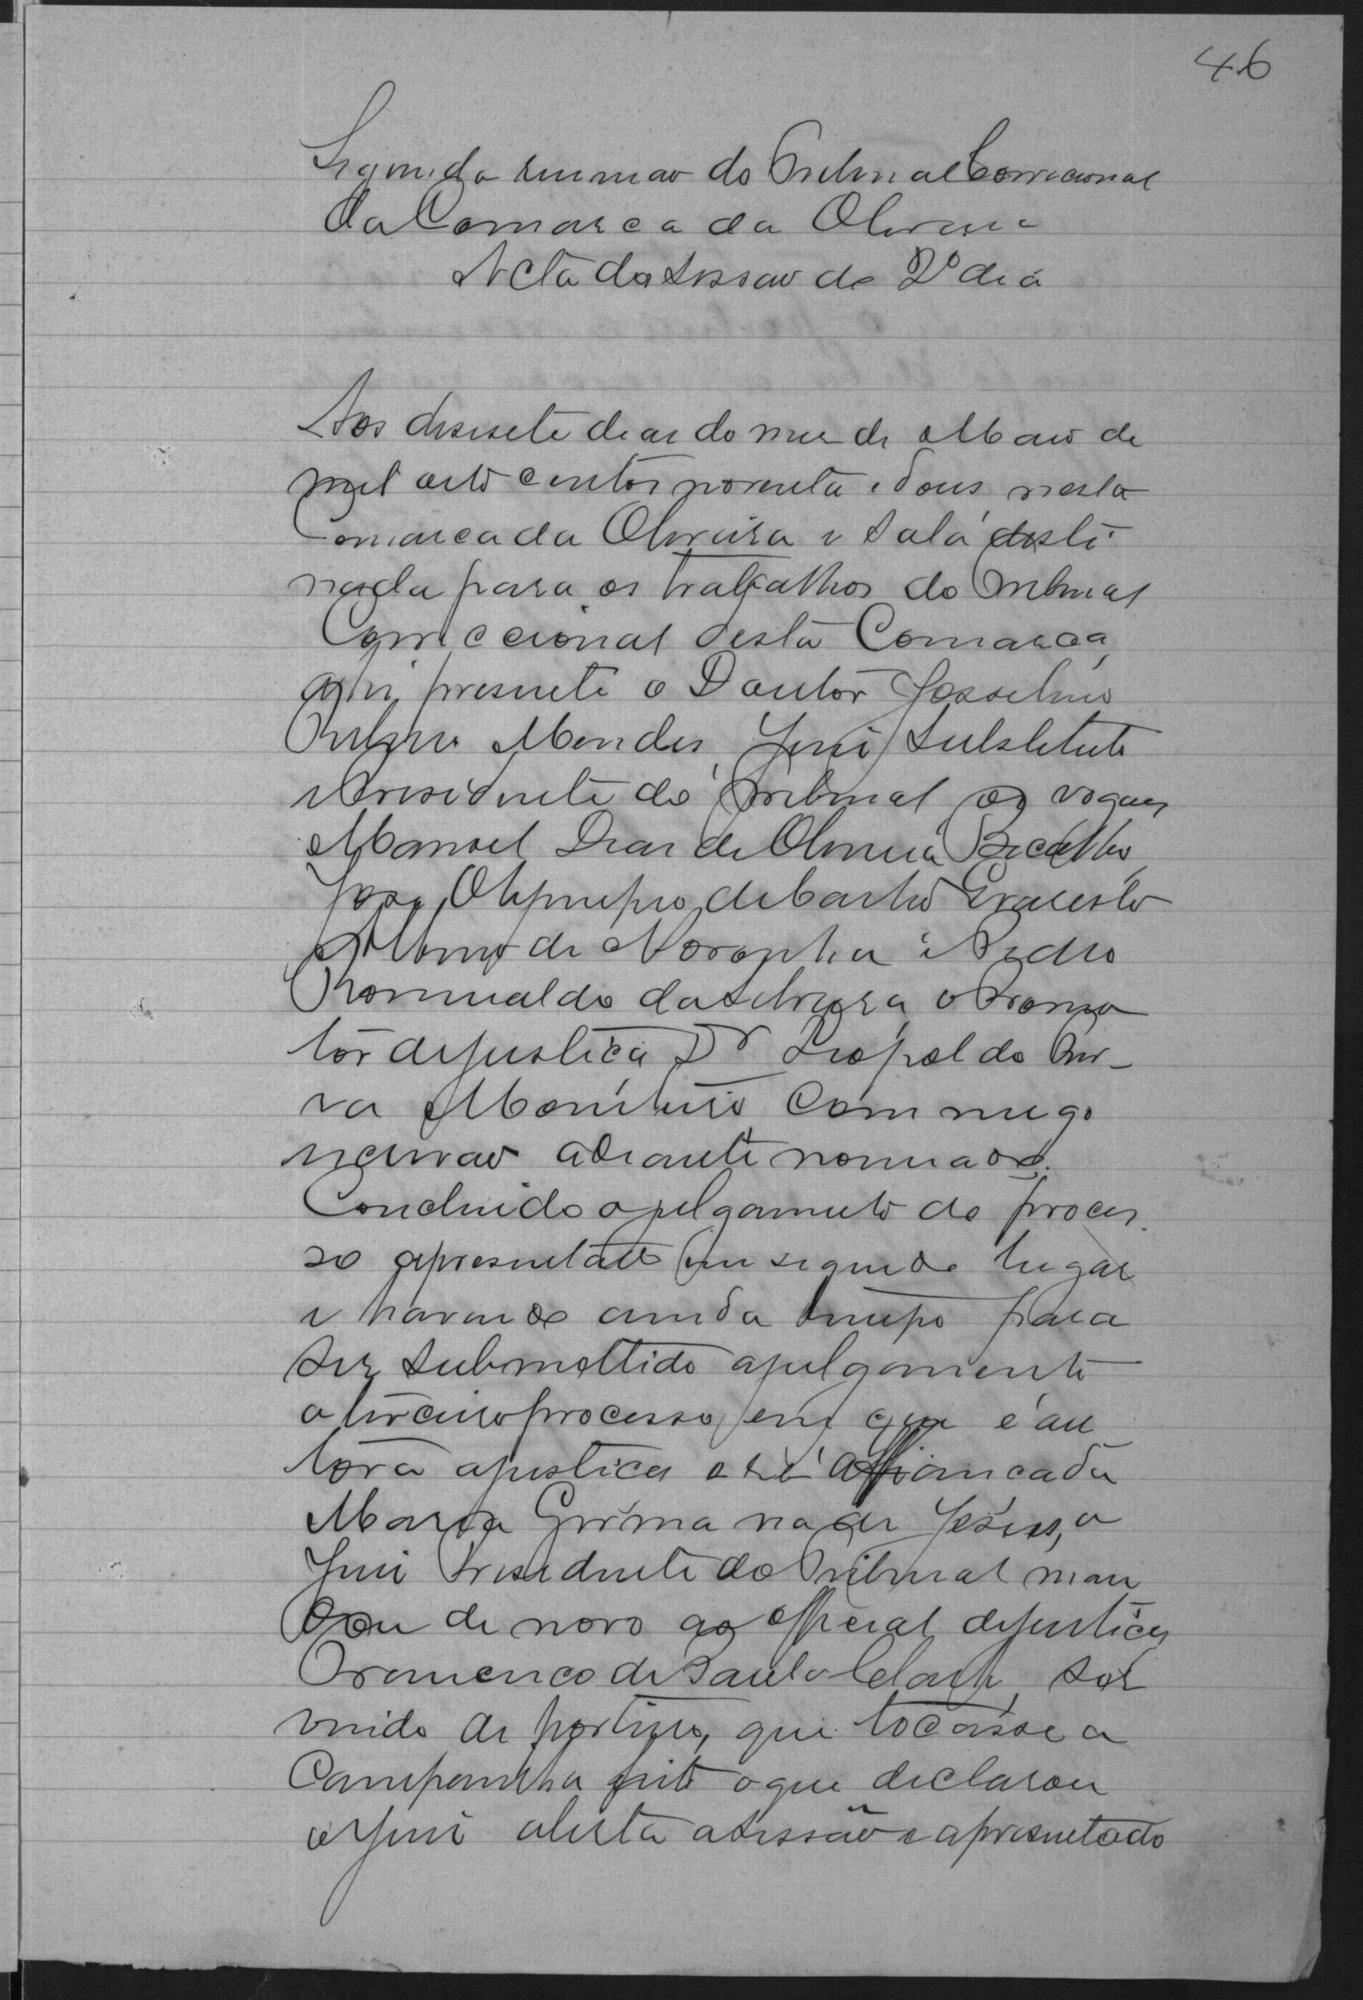 46
Segunda reuniao do Tribunal Correcional
da Comarca da Oliveira
Acta da Sessao do 2º dia
Aos desesete dias do mes de Maio de
mil oito centos noventa e dous nesta
Comarca da Oliveira e Sala desti
nada para os trabalhos do Tribunal
Correccional desta Comarca,
ahi presente o Doutor Josselino
Ribeiro Mendes, Juiz Substituto
e Presidente do Tribunal os vogaes
Manoel Dias de Oliveira Bicalho,
José Olympio de Castro, Ernesto
de Noronha e Pedro
Romualdo da Silveira, o Promo
tor de justiça Dr Leopoldo
Monteiro, Commigo
escrivao adiante nomeado.
Concluido o julgamento do proces
so apresentado em segundo lugar
e havendo ainda tempo para
ser submettido a julgamento
o terceiro processo em que é au
tora a justiça e ré affiancada
Maria Germana de Jesus, o
Juiz Presidente do Tribunal man
dou de novo ao official de justiça
Francisco de Paula ser
vindo de porteiro, que tocasse a
Campainha feito o que declarou
o Juiz aberta a sessão e apresentado